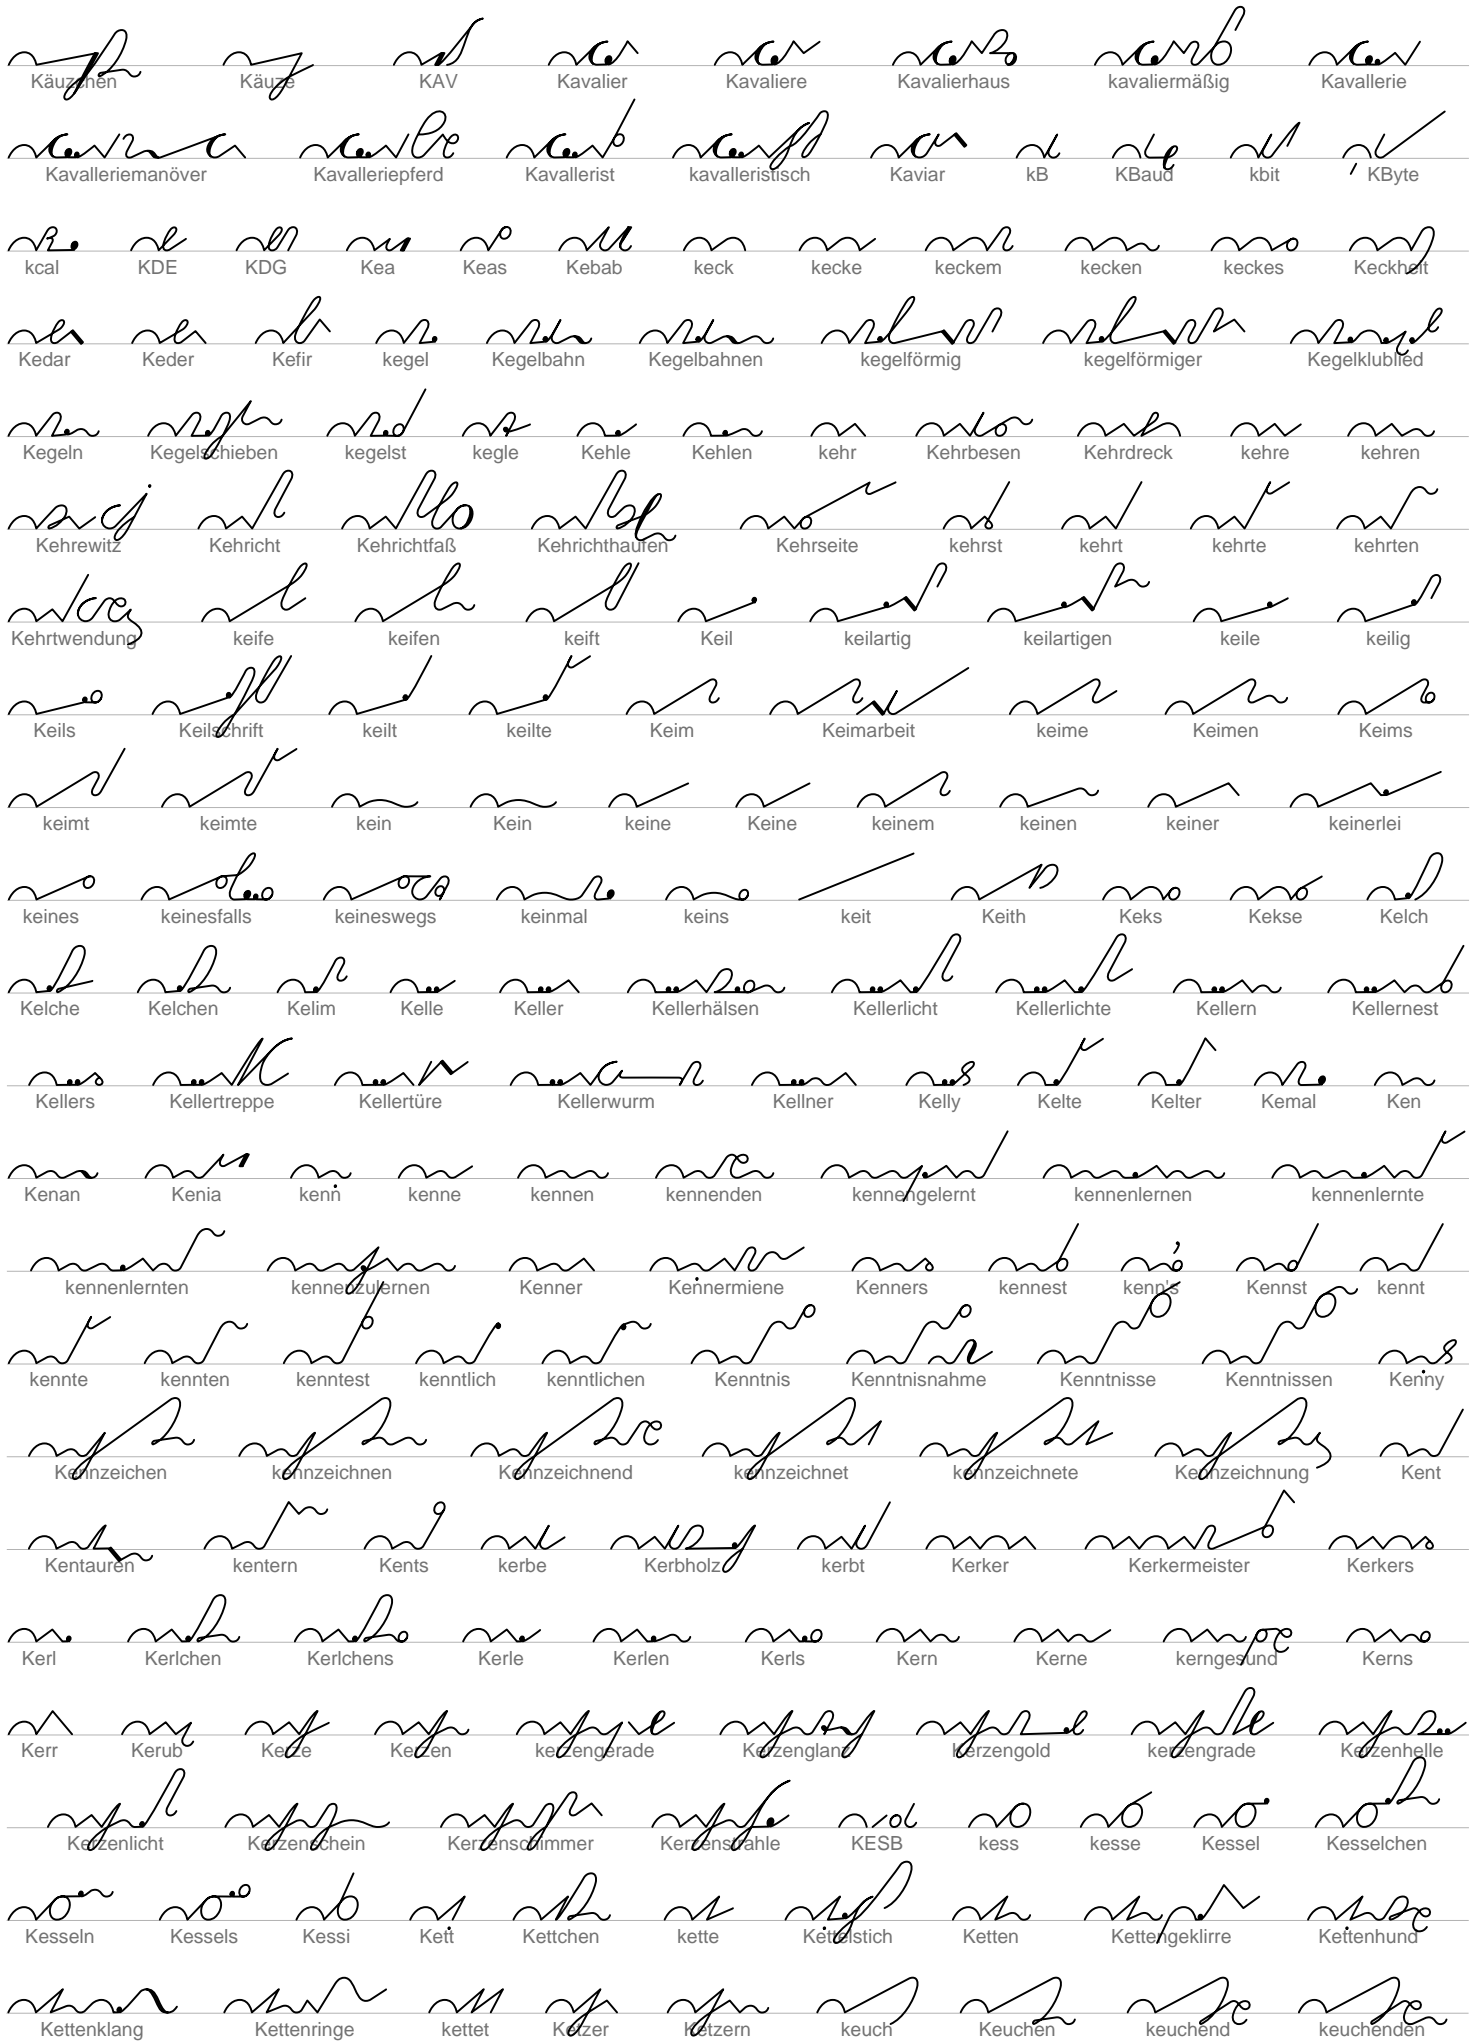 Käuzchen Käuze KAV Kavalier Kavaliere Kavalierhaus kavaliermäßig Kavallerie
Kavalleriemanöver Kavalleriepferd Kavallerist kavalleristisch Kaviar kB KBaud kbit KByte
kcal KDE KDG Kea Keas Kebab keck kecke keckem kecken keckes Keckheit
Kedar Keder Kefir kegel Kegelbahn Kegelbahnen kegelförmig kegelförmiger Kegelklublied
Kegeln Kegelschieben kegelst kegle Kehle Kehlen kehr Kehrbesen Kehrdreck kehre kehren
Kehrewitz Kehricht Kehrichtfaß Kehrichthaufen Kehrseite kehrst kehrt kehrte kehrten
Kehrtwendung keife keifen keift Keil keilartig keilartigen keile keilig
Keils Keilschrift keilt keilte Keim Keimarbeit keime Keimen Keims
keimt keimte kein Kein keine Keine keinem keinen keiner keinerlei
keines keinesfalls keineswegs keinmal keins keit Keith Keks Kekse Kelch
Kelche Kelchen Kelim Kelle Keller Kellerhälsen Kellerlicht Kellerlichte Kellern Kellernest
Kellers Kellertreppe Kellertüre Kellerwurm Kellner Kelly Kelte Kelter Kemal Ken
Kenan Kenia kenn kenne kennen kennenden kennengelernt kennenlernen kennenlernte
kennenlernten kennenzulernen Kenner Kennermiene Kenners kennest kenn's Kennst kennt
kennte kennten kenntest kenntlich kenntlichen Kenntnis Kenntnisnahme Kenntnisse Kenntnissen Kenny
Kennzeichen kennzeichnen Kennzeichnend kennzeichnet kennzeichnete Kennzeichnung Kent
Kentauren kentern Kents kerbe Kerbholz kerbt Kerker Kerkermeister Kerkers
Kerl Kerlchen Kerlchens Kerle Kerlen Kerls Kern Kerne kerngesund Kerns
Kerr Kerub Kerze Kerzen kerzengerade Kerzenglanz Kerzengold kerzengrade Kerzenhelle
Kerzenlicht Kerzenschein Kerzenschimmer Kerzenstrahle KESB kess kesse Kessel Kesselchen
Kesseln Kessels Kessi Kett Kettchen kette Kettelstich Ketten Kettengeklirre Kettenhund
Kettenklang Kettenringe kettet Ketzer Ketzern keuch Keuchen keuchend keuchenden